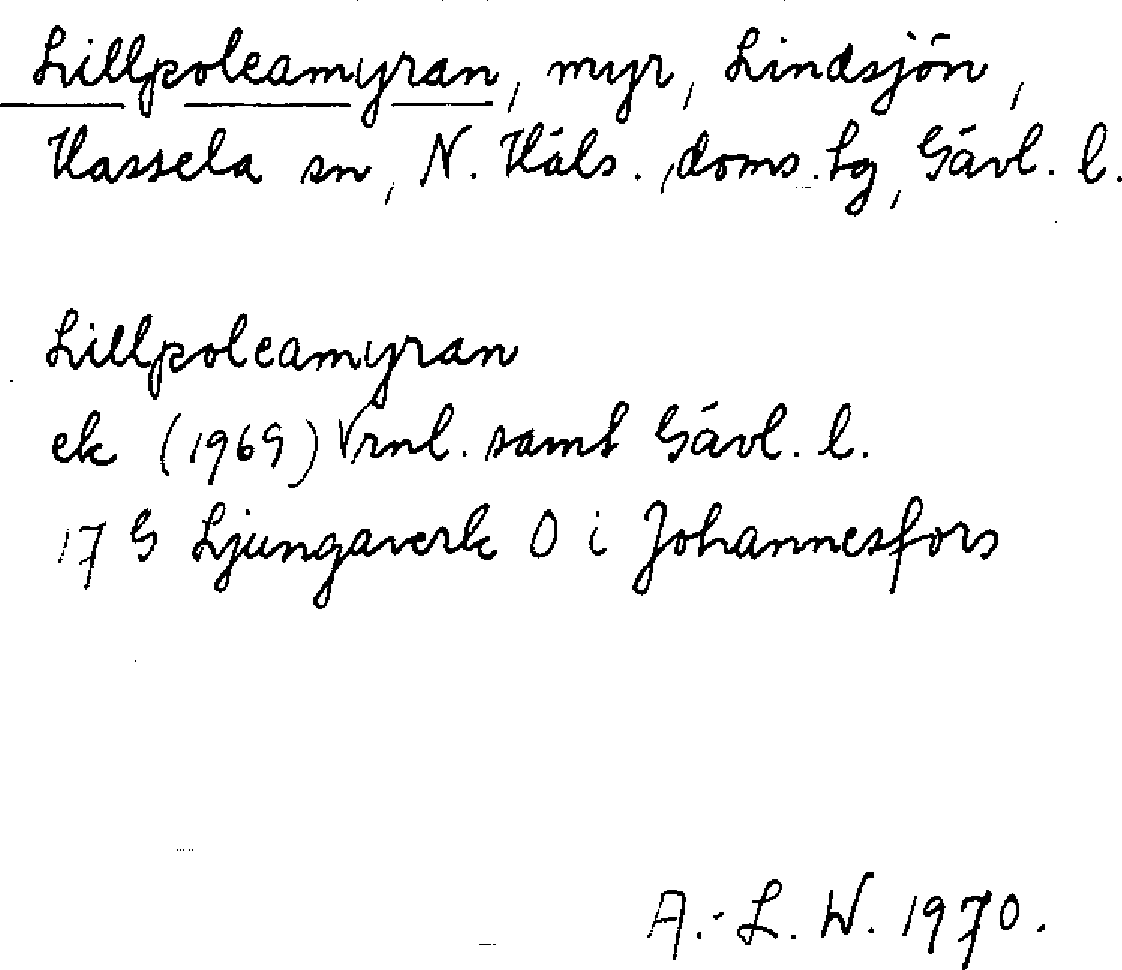 Lillpoleamyran, myr, Lindsjön,
Hassela sn, N. Häls. doms.hg, Gävl. l.
Lillpoleamyran
ek (1969) Vrml. samt Gävl. l.
17 G Ljungaverk O i Johannesfors
A.-L. W. 1970.